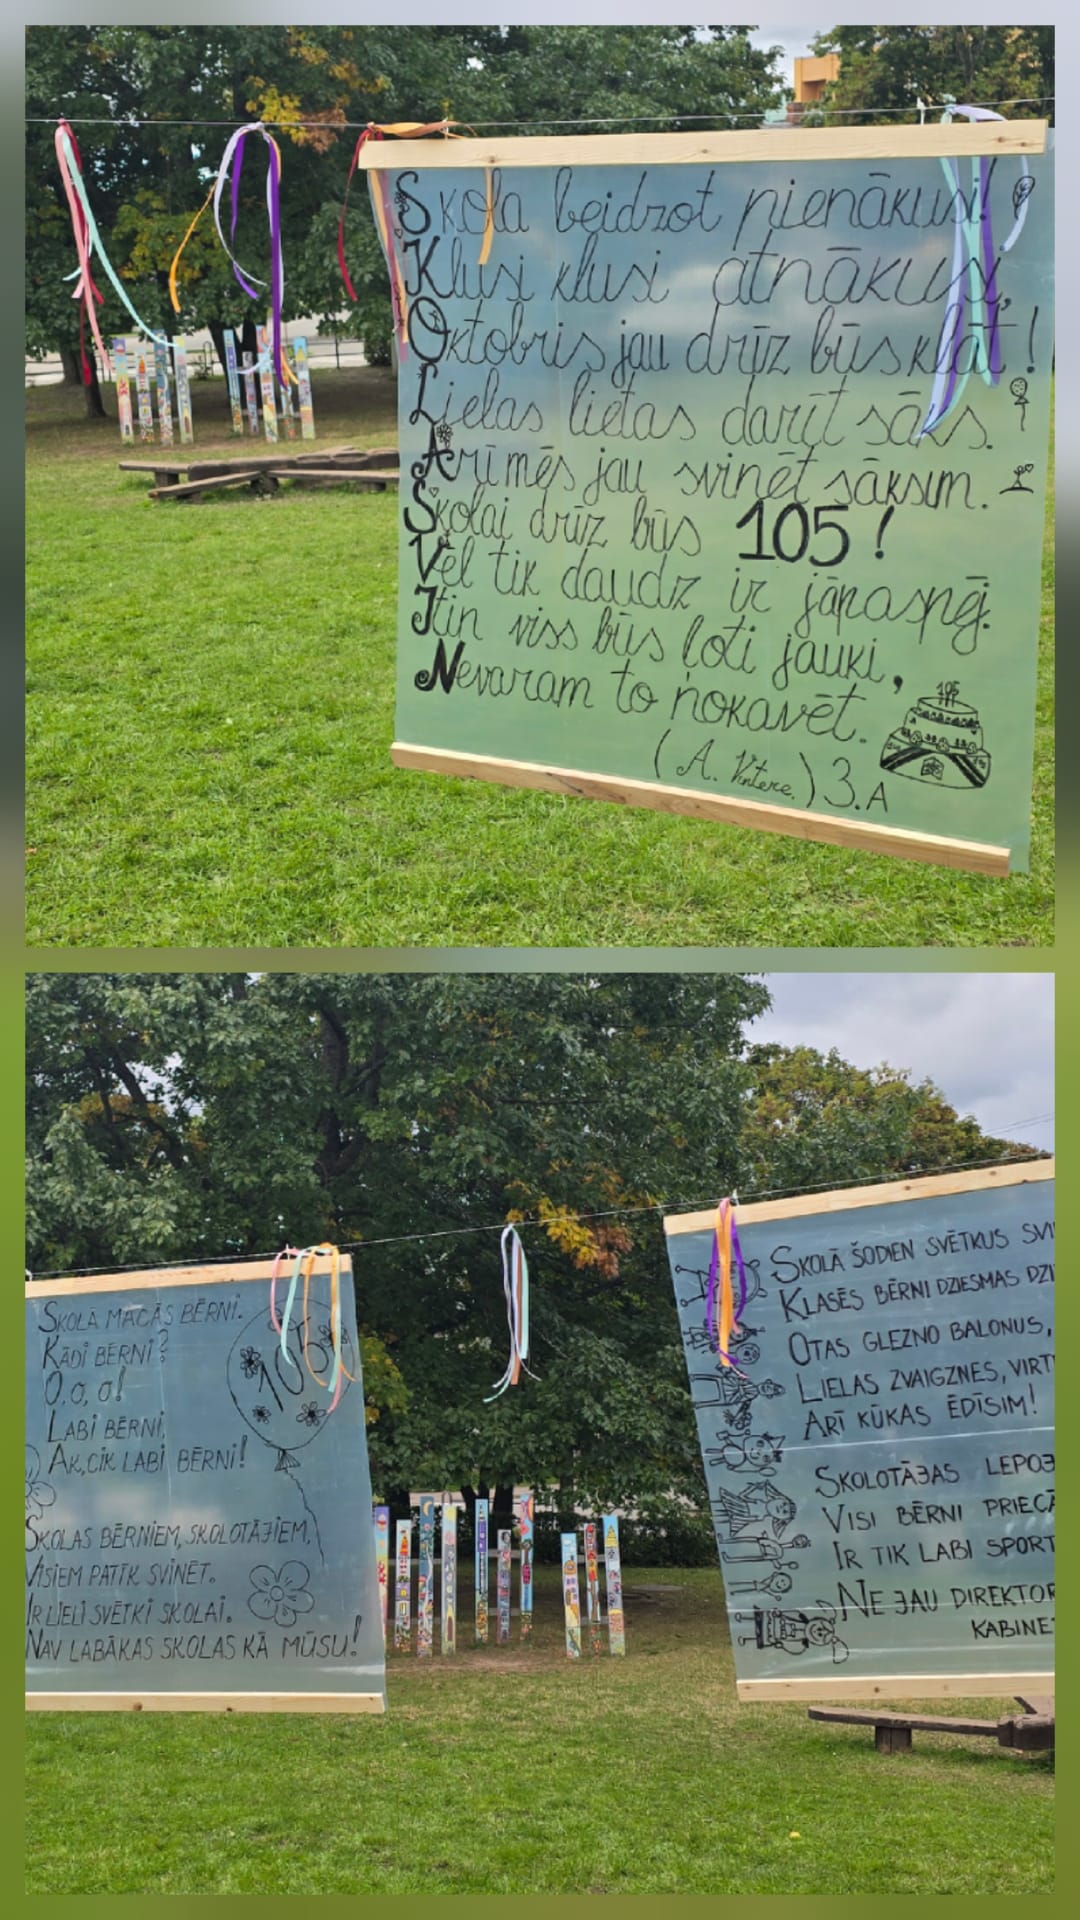 Skola beidzot pienākusi!
Klusi klusi atnākusi,
Oktobris jau drīz būs klāt!
Lielas lietas darīt sāks.
Arī mēs jau svinēt sāksim.
Skolai drīz būs 105!
Vēl tik daudz ir jāpaspēj.
Itin viss būs ļoti jauki,
Nevaram to nokavēt.
(A. Vintere.) 3.A
105
SKOLĀ MĀCĀS BĒRNI.
KĀDI BĒRNI?
O, o, o!
LABI BĒRNI,
AK, CIK LABI BĒRNI!
SKOLAS BĒRNIEM, SKOLOTĀJIEM,
VISIEM PATĪK SVINĒT.
IR LIELI SVĒTKI SKOLAI.
NAV LABĀKAS SKOLAS KĀ MŪSU!
SKOLĀ ŠODIEN SVĒTKUS SVI
KLASĒS BĒRNI DZIESMAS DZI
OTAS GLEZNO BALONUS,
LIELAS ZVAIGZNES, VIRT
ARĪ KŪKAS ĒDĪSIM!
SKOLOTĀJAS LEPOJ
VISI BĒRNI PRIECĀ
IR TIK LABI SPORT
NE JAU DIREKTOR
KABINE